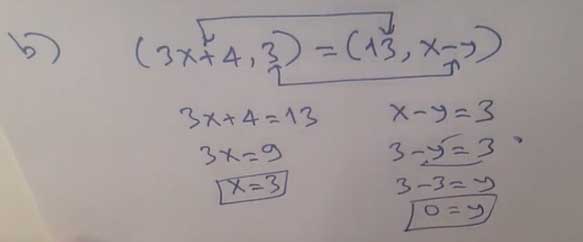 b) (3x+4, 3) = (13, x-y)
3x+4=13
3x=9
x=3
x-y=3
3-y=3
3-3=y
0=y